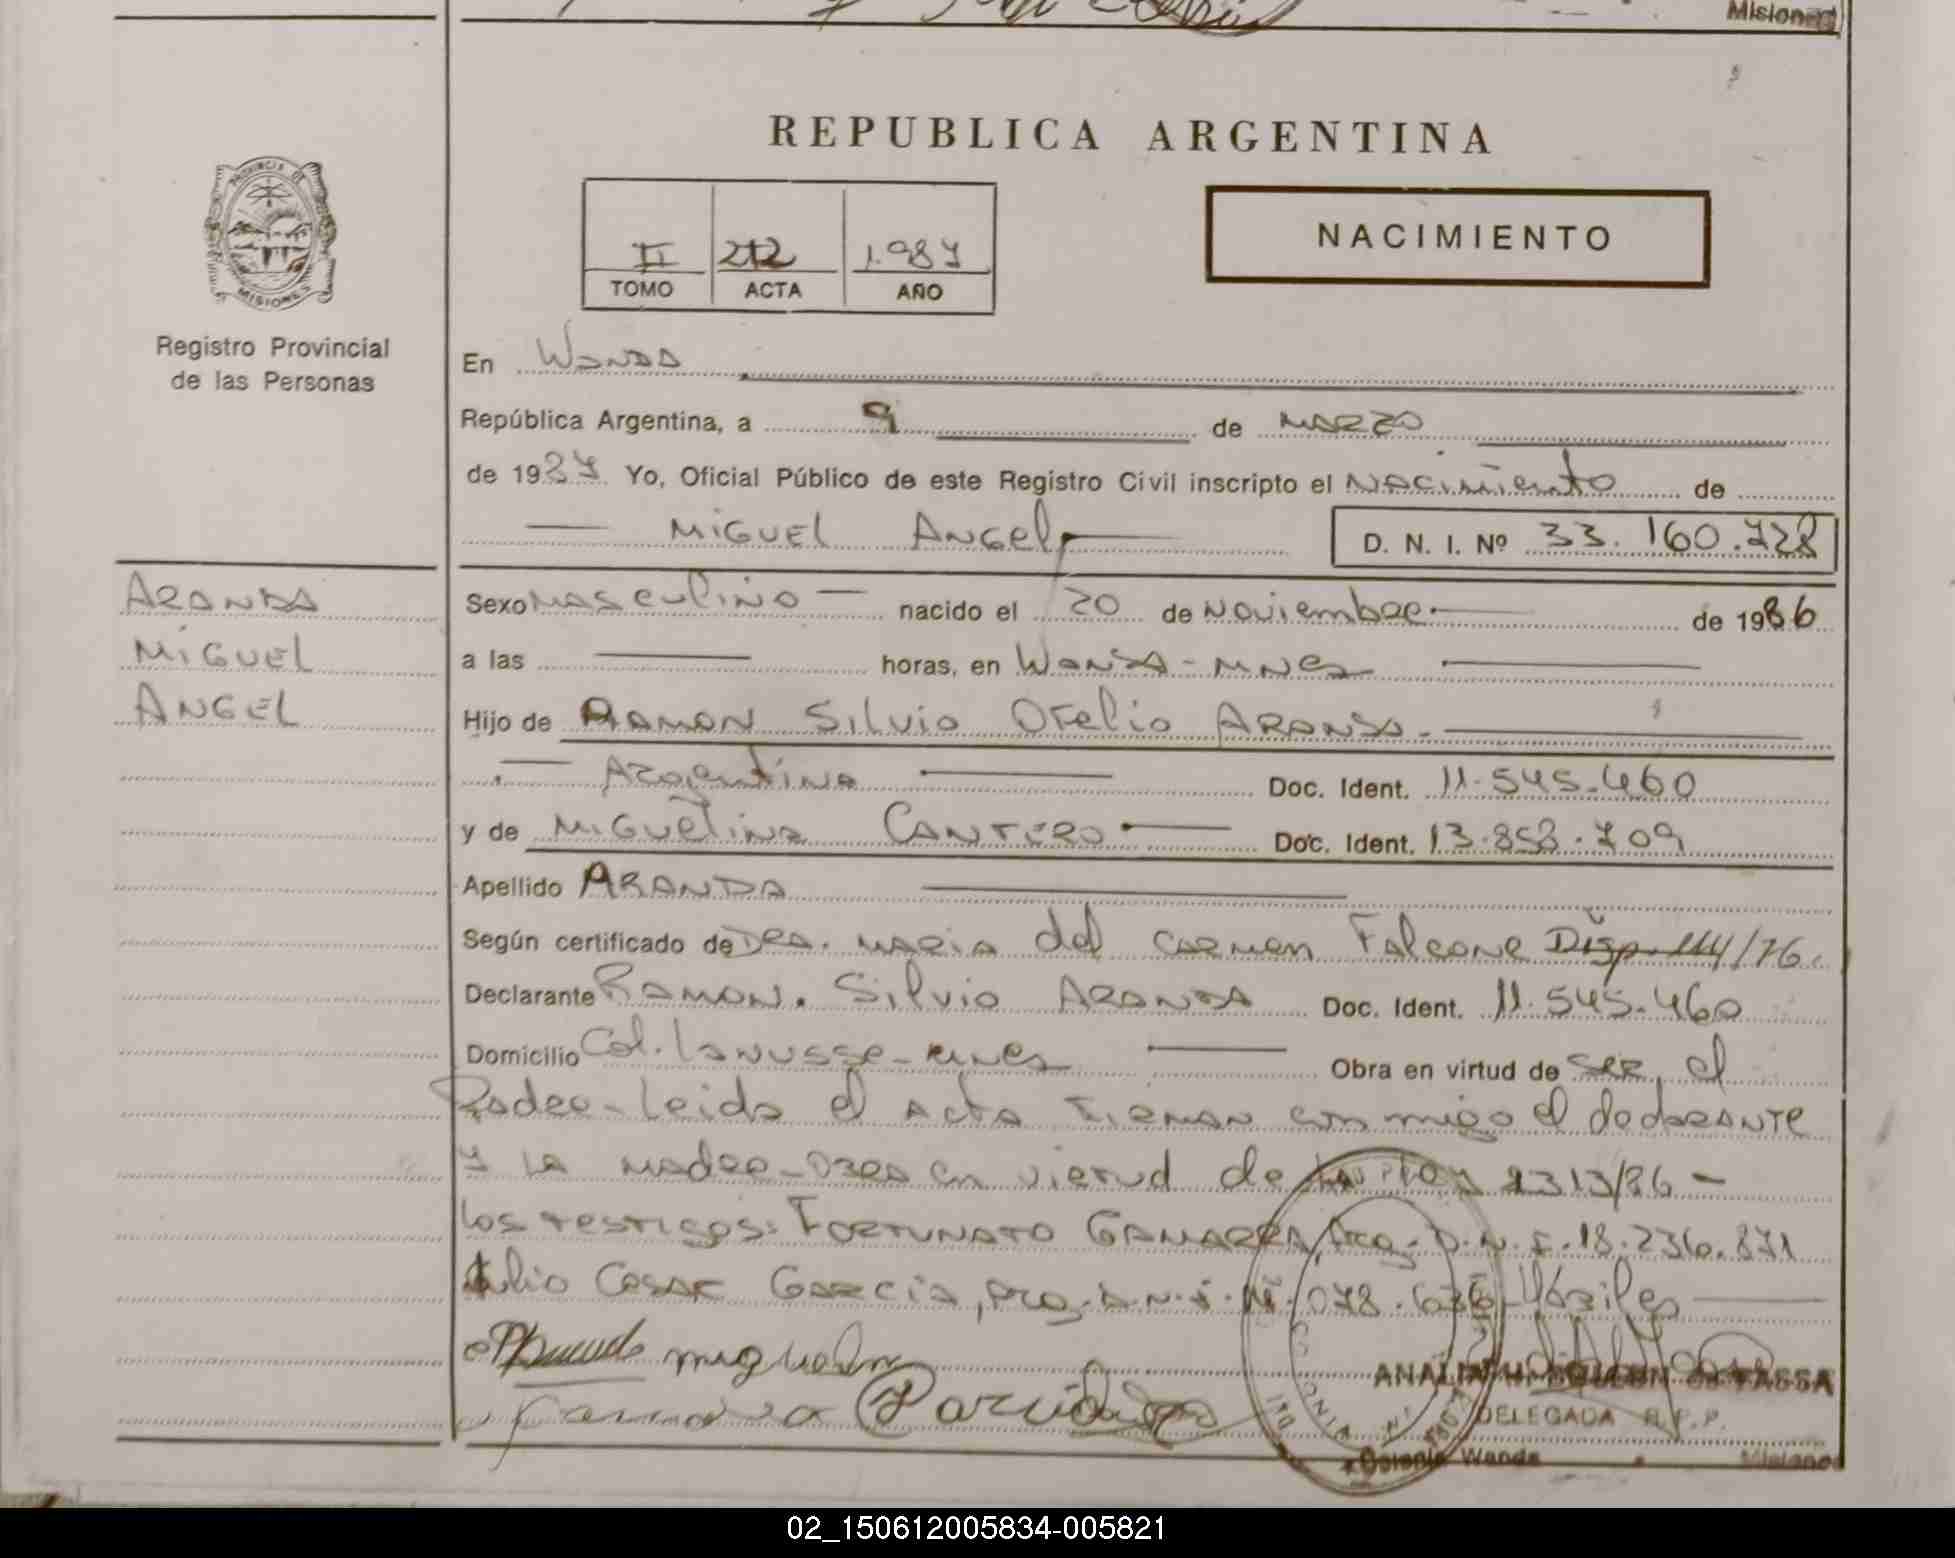 Misiones
REPUBLICA ARGENTINA
PROVINCIA DE MISIONES
NACIMIENTO
II 212 1.987
TOMO ACTA AÑO
Registro Provincial
de las Personas
En Wanda
República Argentina, a 9 de MARZO
de 1987 Yo, Oficial Público de este Registro Civil inscripto el Nacimiento de
MiGUEL ANGel D. N. I. Nº 33.160.728
ARANDA
MiGUEL
ANGEL
Sexo Masculino nacido el 20 de Noviembre de 1986
a las horas, en WANDA - MNES
Hijo de RAMON Silvio Ofelio ARANDA
Argentino Doc. Ident. 11.545.460
y de MiGUElina CANTERO Doc. Ident. 13.858.709
Apellido ARANDA
Según certificado de DRA. MARIA del CARMEN Falcone Disp. 114/76.
Declarante RAMON. Silvio ARANDA Doc. Ident. 11.545.460
Domicilio Col. Lanusse - mnes Obra en virtud de SER el
Padre - Leida el Acta FIRMAN conmigo el declarante
y LA madre - Obra en virtud de ley 2313/86 -
los testigos: FORTUNATO GAMARRA, Arg. D.N.I. 18.236.871
Julio CESAR GARCIA, Arg. D.N.I.
miguelina
DELEGADA R.P.P.
Colonia Wanda Misiones
02_150612005834-005821